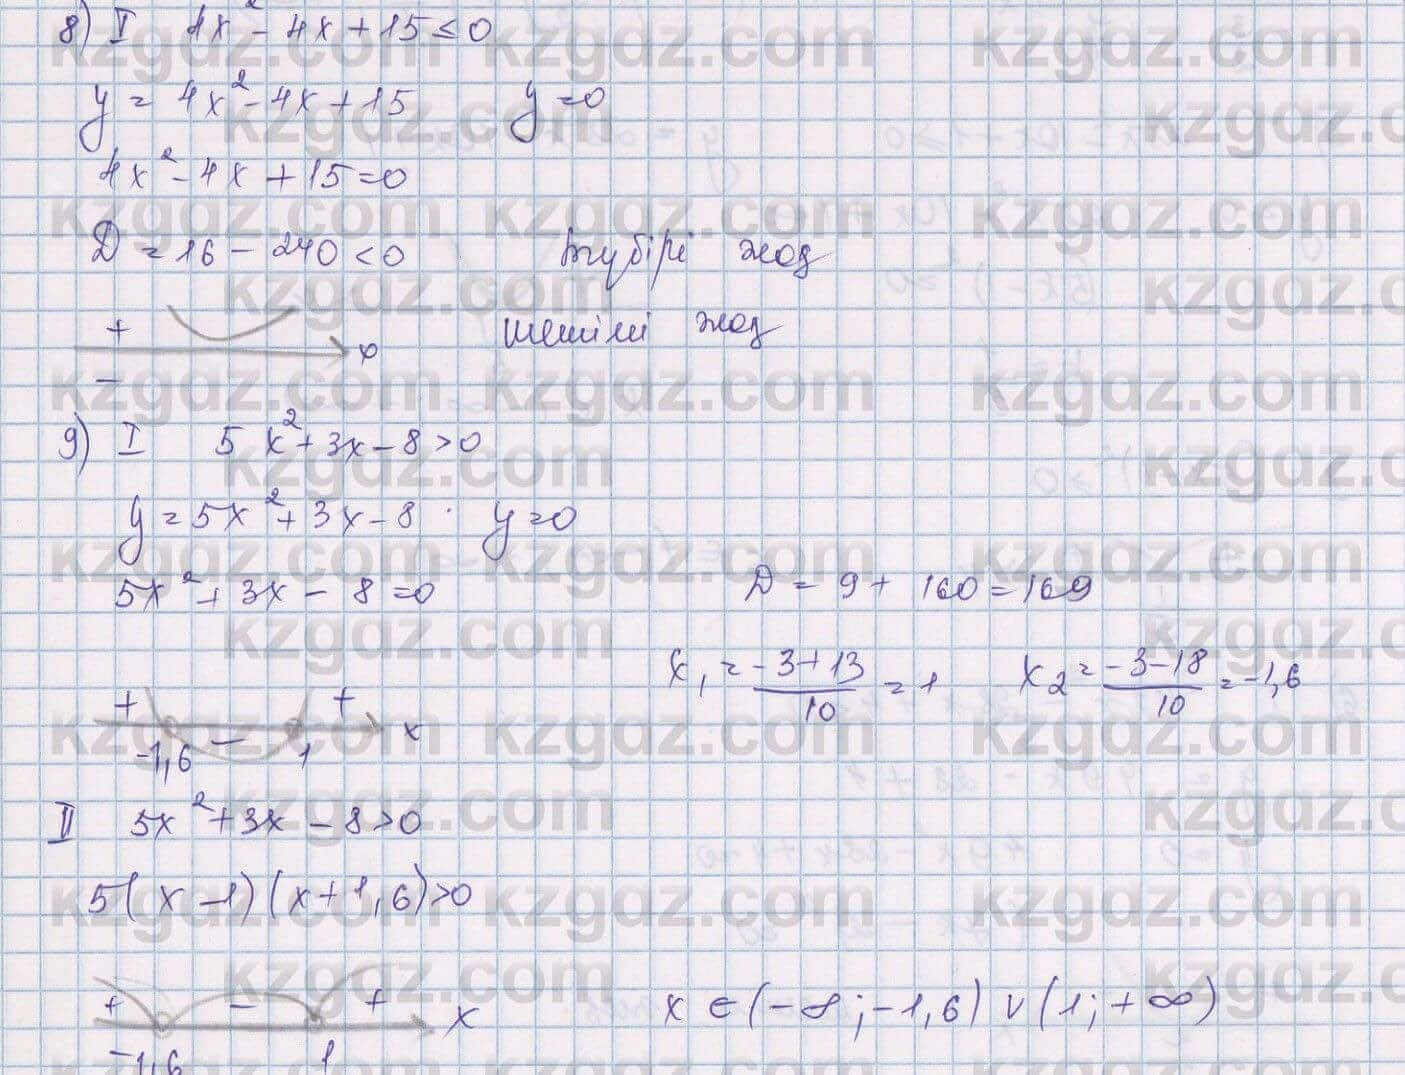 8) I 4x² - 4x + 15 ≤ 0
y = 4x² - 4x + 15 y = 0
4x² - 4x + 15 = 0
D = 16 - 240 < 0 түбірі жоқ
+ шешімі жоқ
x
−
9) I 5x² + 3x - 8 > 0
y = 5x² + 3x - 8 y = 0
5x² + 3x - 8 = 0 D = 9 + 160 = 169
x₁ = (-3+13)/10 = 1 x₂ = (-3-18)/10 = -1,6
+ − + x
-1,6 1
II 5x² + 3x - 8 > 0
5(x - 1)(x + 1,6) > 0
+ − + x x ∈ (-∞; -1,6) ∪ (1; +∞)
-1,6 1
kzgdz.com